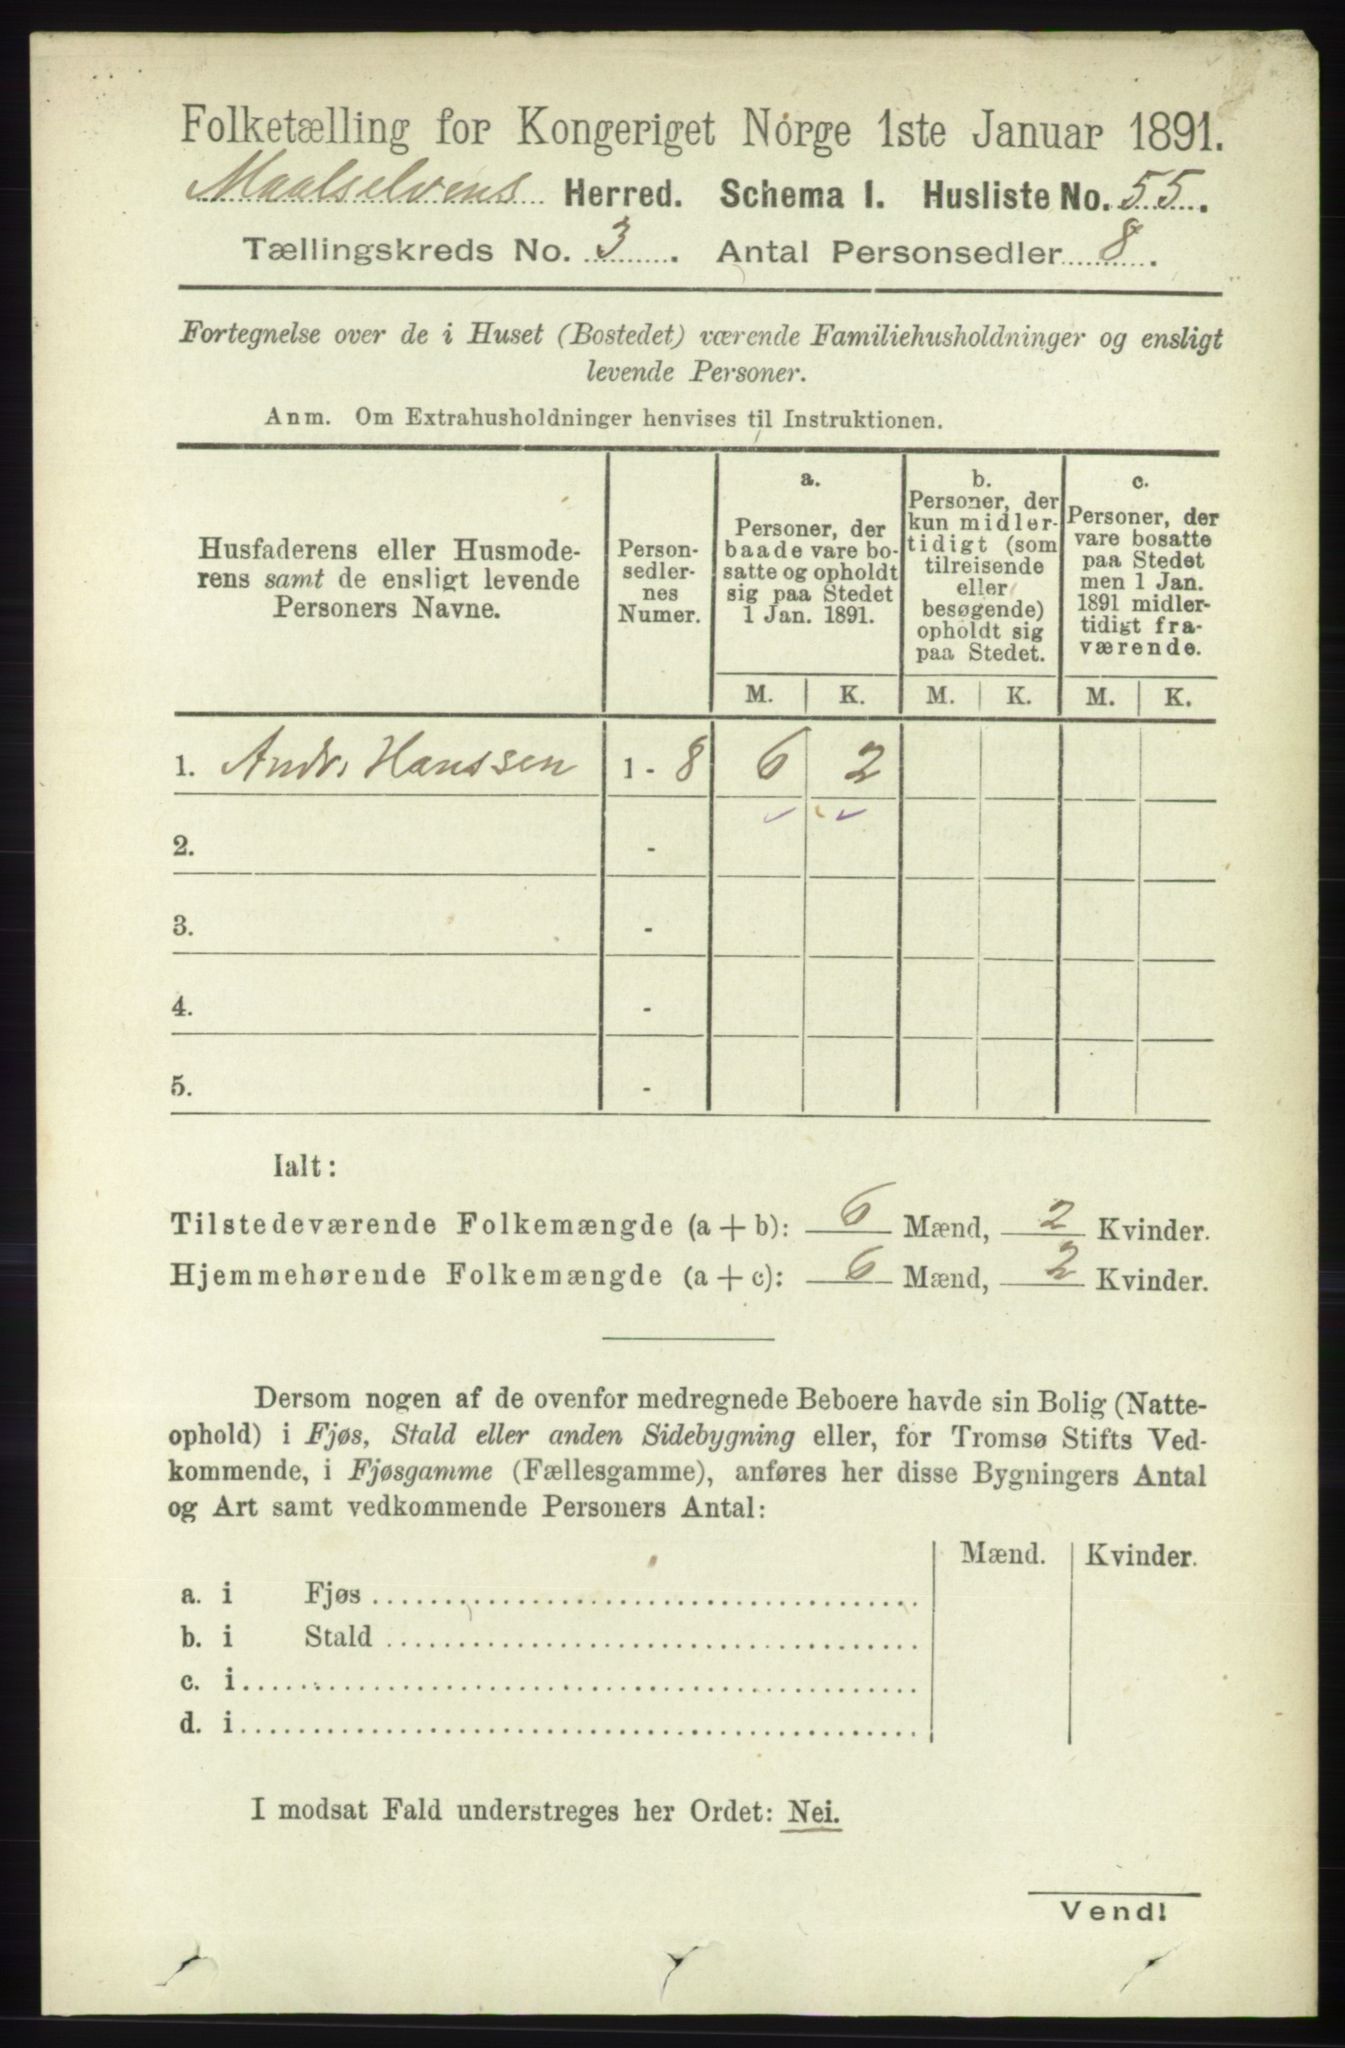 Folketælling for Kongeriget Norge 1ste Januar 1891.
Maalselvens Herred. Schema I. Husliste No. 55.
Tællingskreds No. 3. Antal Personsedler 8.
Fortegnelse over de i Huset (Bostedet) værende Familiehusholdninger og ensligt
levende Personer.
Anm. Om Extrahusholdninger henvises til Instruktionen.
Husfaderens eller Husmode-
rens samt de ensligt levende
Personers Navne.
Person-
sedler-
nes
Numer.
a.
Personer, der
baade vare bo-
satte og opholdt
sig paa Stedet
1 Jan. 1891.
b.
Personer, der
kun midler-
tidigt (som
tilreisende
eller
besøgende)
opholdt sig
paa Stedet.
c.
Personer, der
vare bosatte
paa Stedet
men 1 Jan.
1891 midler-
tidigt fra-
værende.
M. K. M. K. M. K.
1. Andr. Hanssen 1 - 8 6 2
2. -
3. -
4. -
5. -
Ialt:
Tilstedeværende Folkemængde (a + b): 6 Mænd, 2 Kvinder.
Hjemmehørende Folkemængde (a + c): 6 Mænd, 2 Kvinder.
Dersom nogen af de ovenfor medregnede Beboere havde sin Bolig (Natte-
ophold) i Fjøs, Stald eller anden Sidebygning eller, for Tromsø Stifts Ved-
kommende, i Fjøsgamme (Fællesgamme), anføres her disse Bygningers Antal
og Art samt vedkommende Personers Antal:
Mænd. Kvinder.
a. i Fjøs
b. i Stald
c. i
d. i
I modsat Fald understreges her Ordet: Nei.
Vend!